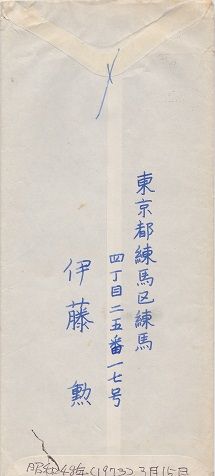 東京都練馬区練馬
四丁目二五番一七号
伊藤勲
昭和48年(1973)3月15日